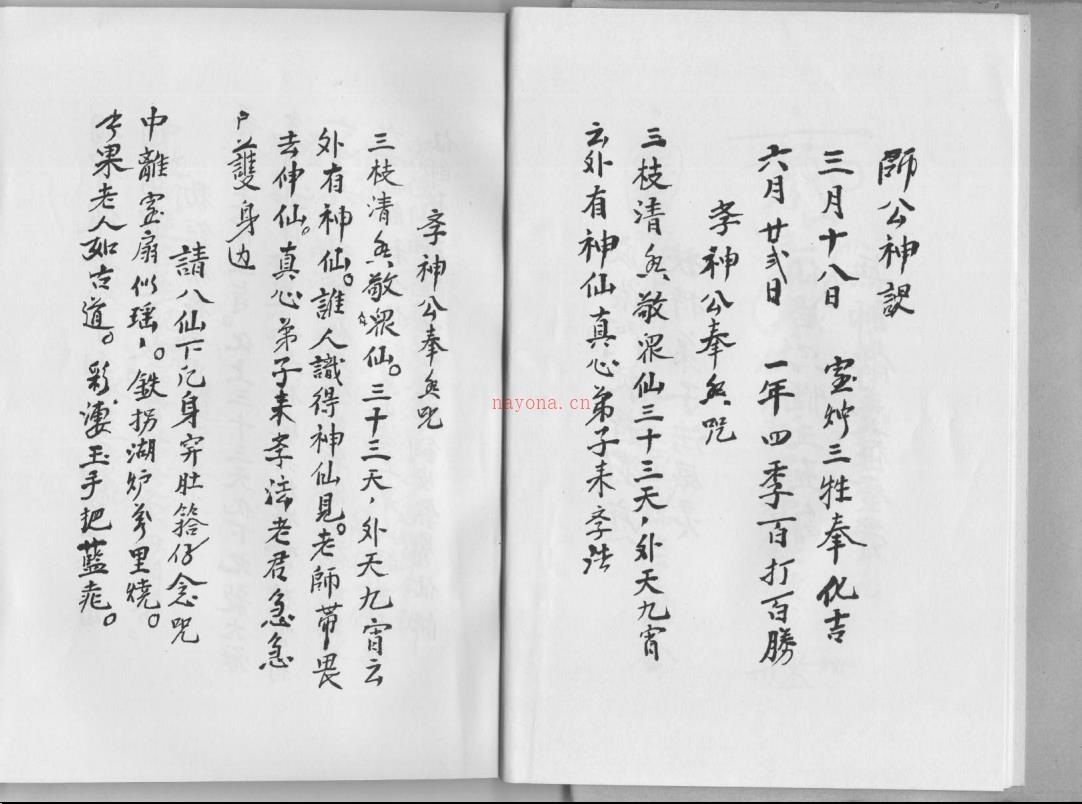 師公神誤
三月十八日 宝炉三牲奉化吉
六月廿弍日 一年四季百打百勝
孝神公奉香咒
三枝清香敬眾仙三十三天，外天九宵
云外有神仙真心弟子来孝法
孝神公奉香咒
三枝清香敬眾仙。三十三天，外天九宵云
外有神仙。誰人識得神仙見。老師帶畏
去伸仙。真心弟子来孝法老君急急
護身边
請八仙下凡身穿肚 仔念咒
中離宝扇似瑶，。鉄拐湖炉 里燒。
果老人如古道。彩 玉手把藍 。
nayona.cn